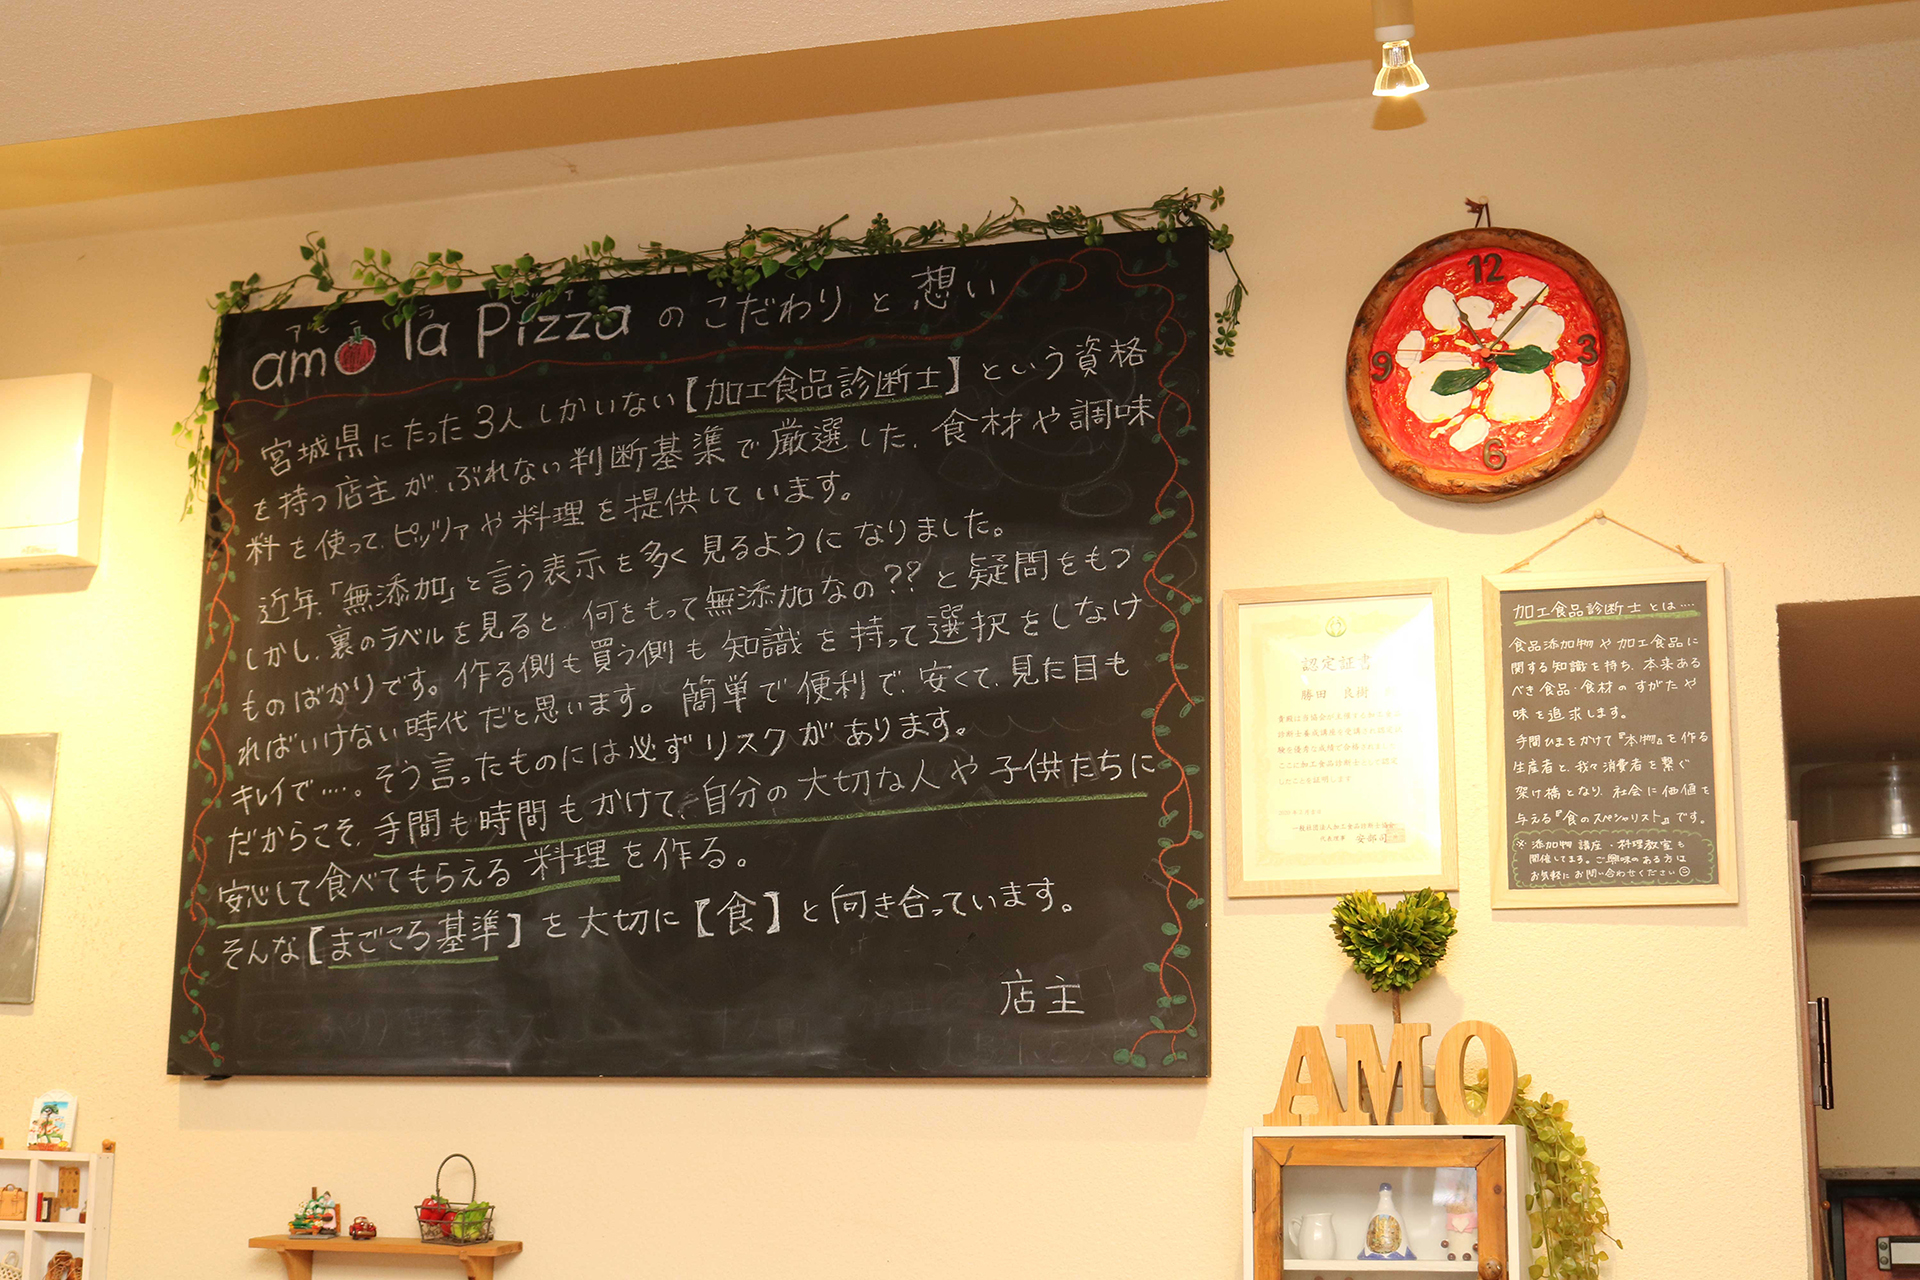 アモーラピッツア
amo la Pizza のこだわりと想い
宮城県にたった3人しかいない【加工食品診断士】という資格
を持つ店主が、ぶれない判断基準で厳選した、食材や調味
料を使って、ピッツァや料理を提供しています。
近年、「無添加」と言う表示を多く見るようになりました。
しかし、裏のラベルを見ると、何をもって無添加なの??と疑問をもつ
ものばかりです。作る側も買う側も知識を持って選択をしなけ
ればいけない時代だと思います。簡単で便利で、安くて、見た目も
キレイで‥‥。そう言ったものには必ずリスクがあります。
だからこそ、手間も時間もかけて、自分の大切な人や子供たちに
安心して食べてもらえる料理を作る。
そんな【まごころ基準】を大切に【食】と向き合っています。
店主
12
3
6
9
認定証書
勝田 良樹
貴殿は当協会が主催する加工食品
診断士養成講座を受講され認定試
験を優秀な成績で合格されました
ここに加工食品診断士として認定
したことを証明します
一般社団法人加工食品診断士協会
代表理事 安部司
加工食品診断士とは‥‥
食品添加物や加工食品に
関する知識を持ち、本来ある
べき食品・食材のすがたや
味を追求します。
手間ひまをかけて『本物』を作る
生産者と、我々消費者を繋ぐ
架け橋となり、社会に価値を
与える『食のスペシャリスト』です。
※添加物講座・料理教室も
開催してます。ご興味のある方は
お気軽にお問い合わせください☺
AMO